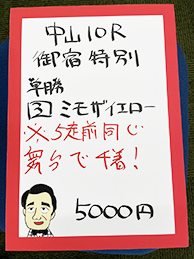 中山10R
御宿特別
単勝
図ミモザイエロー
※5走前同じ
舞台で1着!
5000円